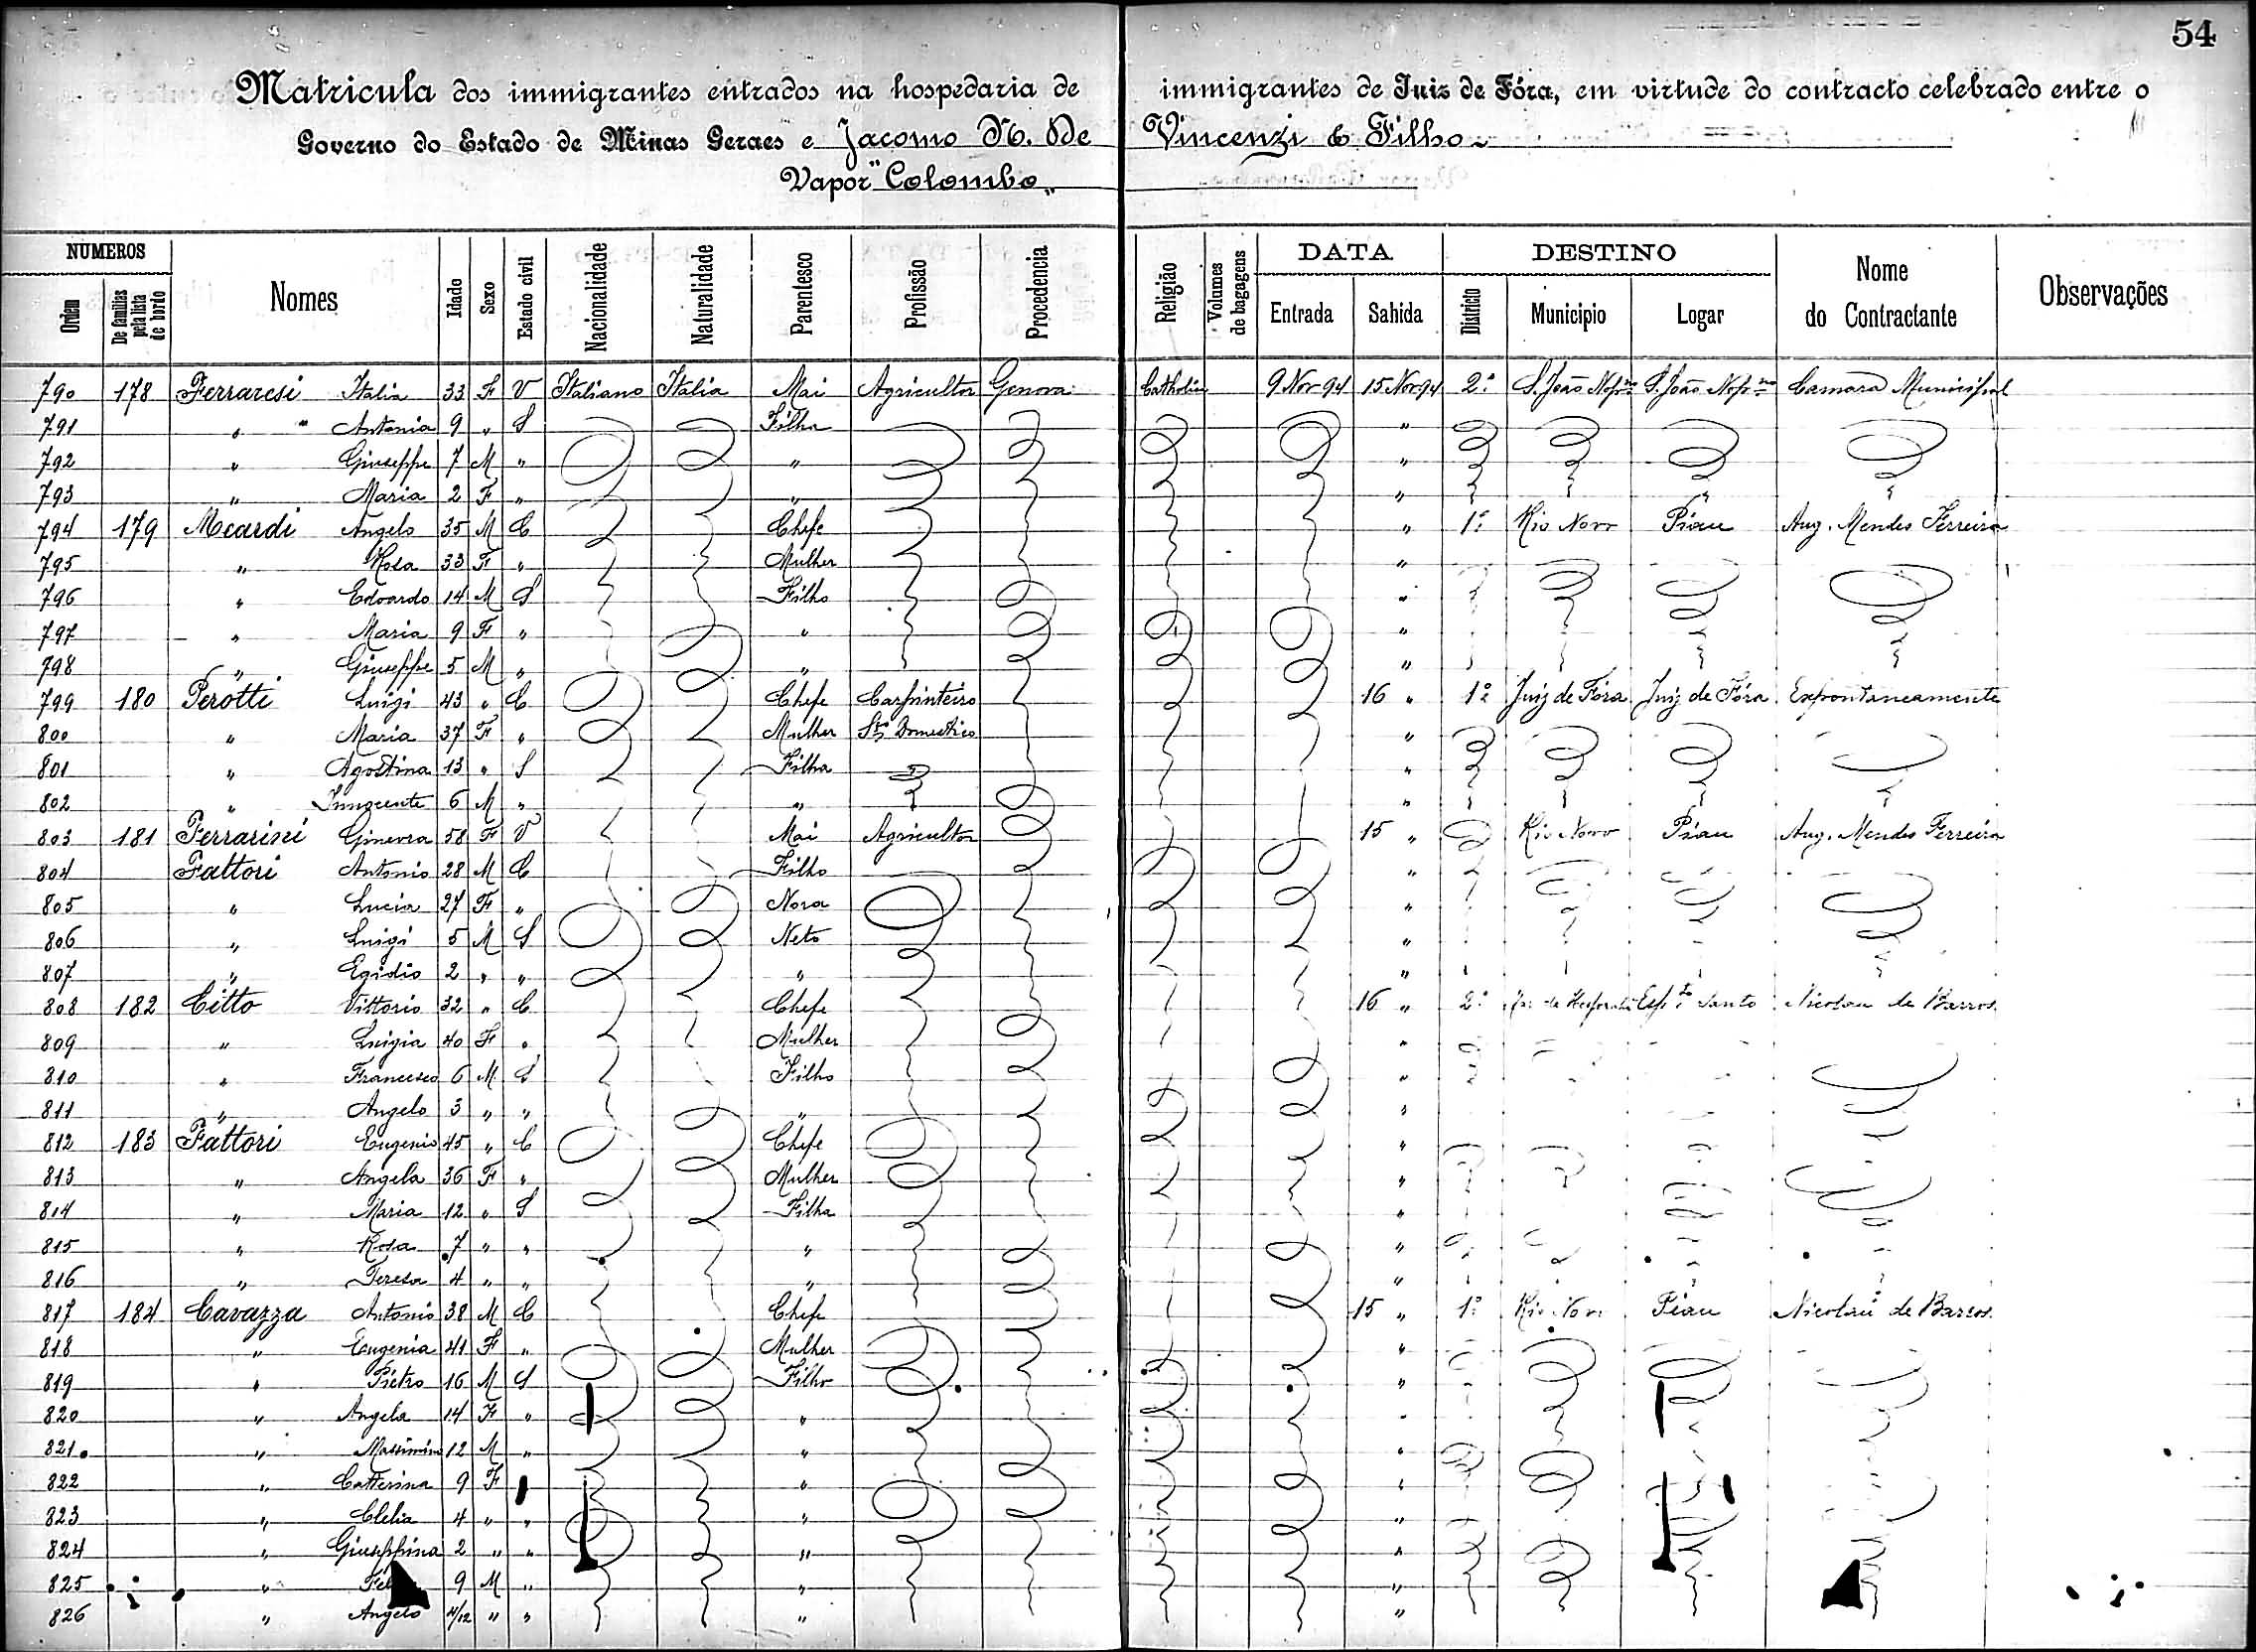 54
Matricula dos immigrantes entrados na hospedaria de immigrantes de Juiz de Fóra, em virtude do contracto celebrado entre o
Governo do Estado de Minas Geraes e Jacomo N. De Vincenzi & Filho
Vapor "Colombo"
NUMEROS DATA DESTINO
Ordem De familias pela lista de bordo Nomes Idade Sexo Estado civil Nacionalidade Naturalidade Parentesco Profissão Procedencia Religião Volumes de bagagens Entrada Sahida Districto Municipio Logar Nome do Contractante Observações
790 178 Ferraresi Italia 33 F V Italiano Italia Mai Agricultor Genova Catholica 9 Nov 94 15 Nov 94 2º S. João Nepno S. João Nepno Camara Municipal
791 " " Antonia 9 " S Filha "
792 " Giuseppe 7 M " " "
793 " Maria 2 F " " "
794 179 Angelo 35 M C Chefe " 1º Rio Novo Piau Aug. Mendes Ferreira
795 " Rosa 33 F " Mulher "
796 " Edoardo 14 M S Filho "
797 " Maria 9 F " " "
798 " Giuseppe 5 M " " "
799 180 Perotti Luigi 43 " C Chefe Carpinteiro 16 " 1º Juiz de Fóra Juiz de Fóra Expontaneamente
800 " Maria 37 F " Mulher Domestico "
801 " Agostina 13 " S Filha "
802 " Innocente 6 M " " "
803 181 Ferrarini Ginevra 58 F V Mai Agricultor 15 " Rio Novo Piau Aug. Mendes Ferreira
804 Fattori Antonio 28 M C Filho "
805 " Lucia 27 F " Nora "
806 " Luigi 5 M S Neto "
807 " Egidio 2 " " " "
808 182 Citto Vittorio 32 " C Chefe 16 " 2º Espto Santo Nicolau de Barros
809 " Luigia 40 F " Mulher "
810 " Francesco 6 M S Filho "
811 " Angelo 3 " " " "
812 183 Fattori Eugenio 45 " C Chefe "
813 " Angela 36 F " Mulher "
814 " Maria 12 " S Filha "
815 " Rosa 7 " " " "
816 " Teresa 4 " " " "
817 184 Cavazza Antonio 38 M C Chefe 15 " 1º Rio Novo Piau Nicolau de Barros
818 " Eugenia 41 F " Mulher "
819 " Pietro 16 M S Filho "
820 " Angela 14 F " " "
821 " Massimino 12 M " " "
822 " Catterina 9 F " "
823 " Clelia 4 " " " "
824 " Giuseppina 2 " " " "
825 " 9 M " " "
826 " Angelo 4/12 " " " "